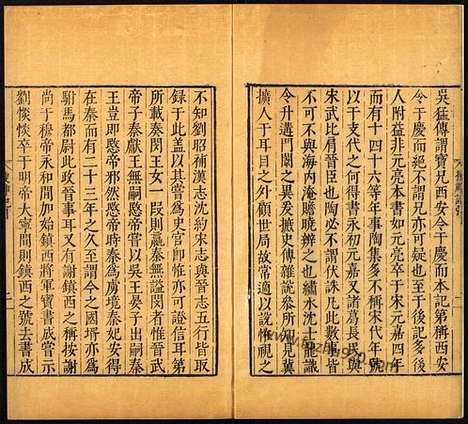 吳猛傳謂寶兄西安令于慶而本記第稱西安
令于慶而絕不謂兄亦可疑也至于後記多後
人附益非元亮本書如元亮卒于宋元嘉四年
而有十四十六等年事陶集多不稱宋代年號
以干支代之何得書永初元嘉又諸葛長民與
宋武比肩晉臣也陶必不謂伏誅凡此數事皆
不可不與海内淹贍曉辨之士共繡水沈士龍識
令升遘門闥之異爰摭史傳雜說參所知見冀
擴人于耳目之外顧世局故常適以說怪視之
不知劉昭補漢志沈約宋志與晉志五行皆取
錄于此葢以其嘗為史官即怪亦可證信耳第
所載秦閔王女一叚則嬴秦無諡閔者惟晉愍
帝子繫秦王吳孝王晏子出嗣秦
王豈即愍帝邪然愍帝為虜境秦妃安得
在秦而有二十三年之久至謂今之國壻亦為
駙馬都尉此政晉事耳又有謝鎮西之稱按謝
尚于穆帝永和間加始鎮西將軍寶書成嘗示
劉惔惔卒于明帝大寧間則鎮西之號去書成
搜神記引
二